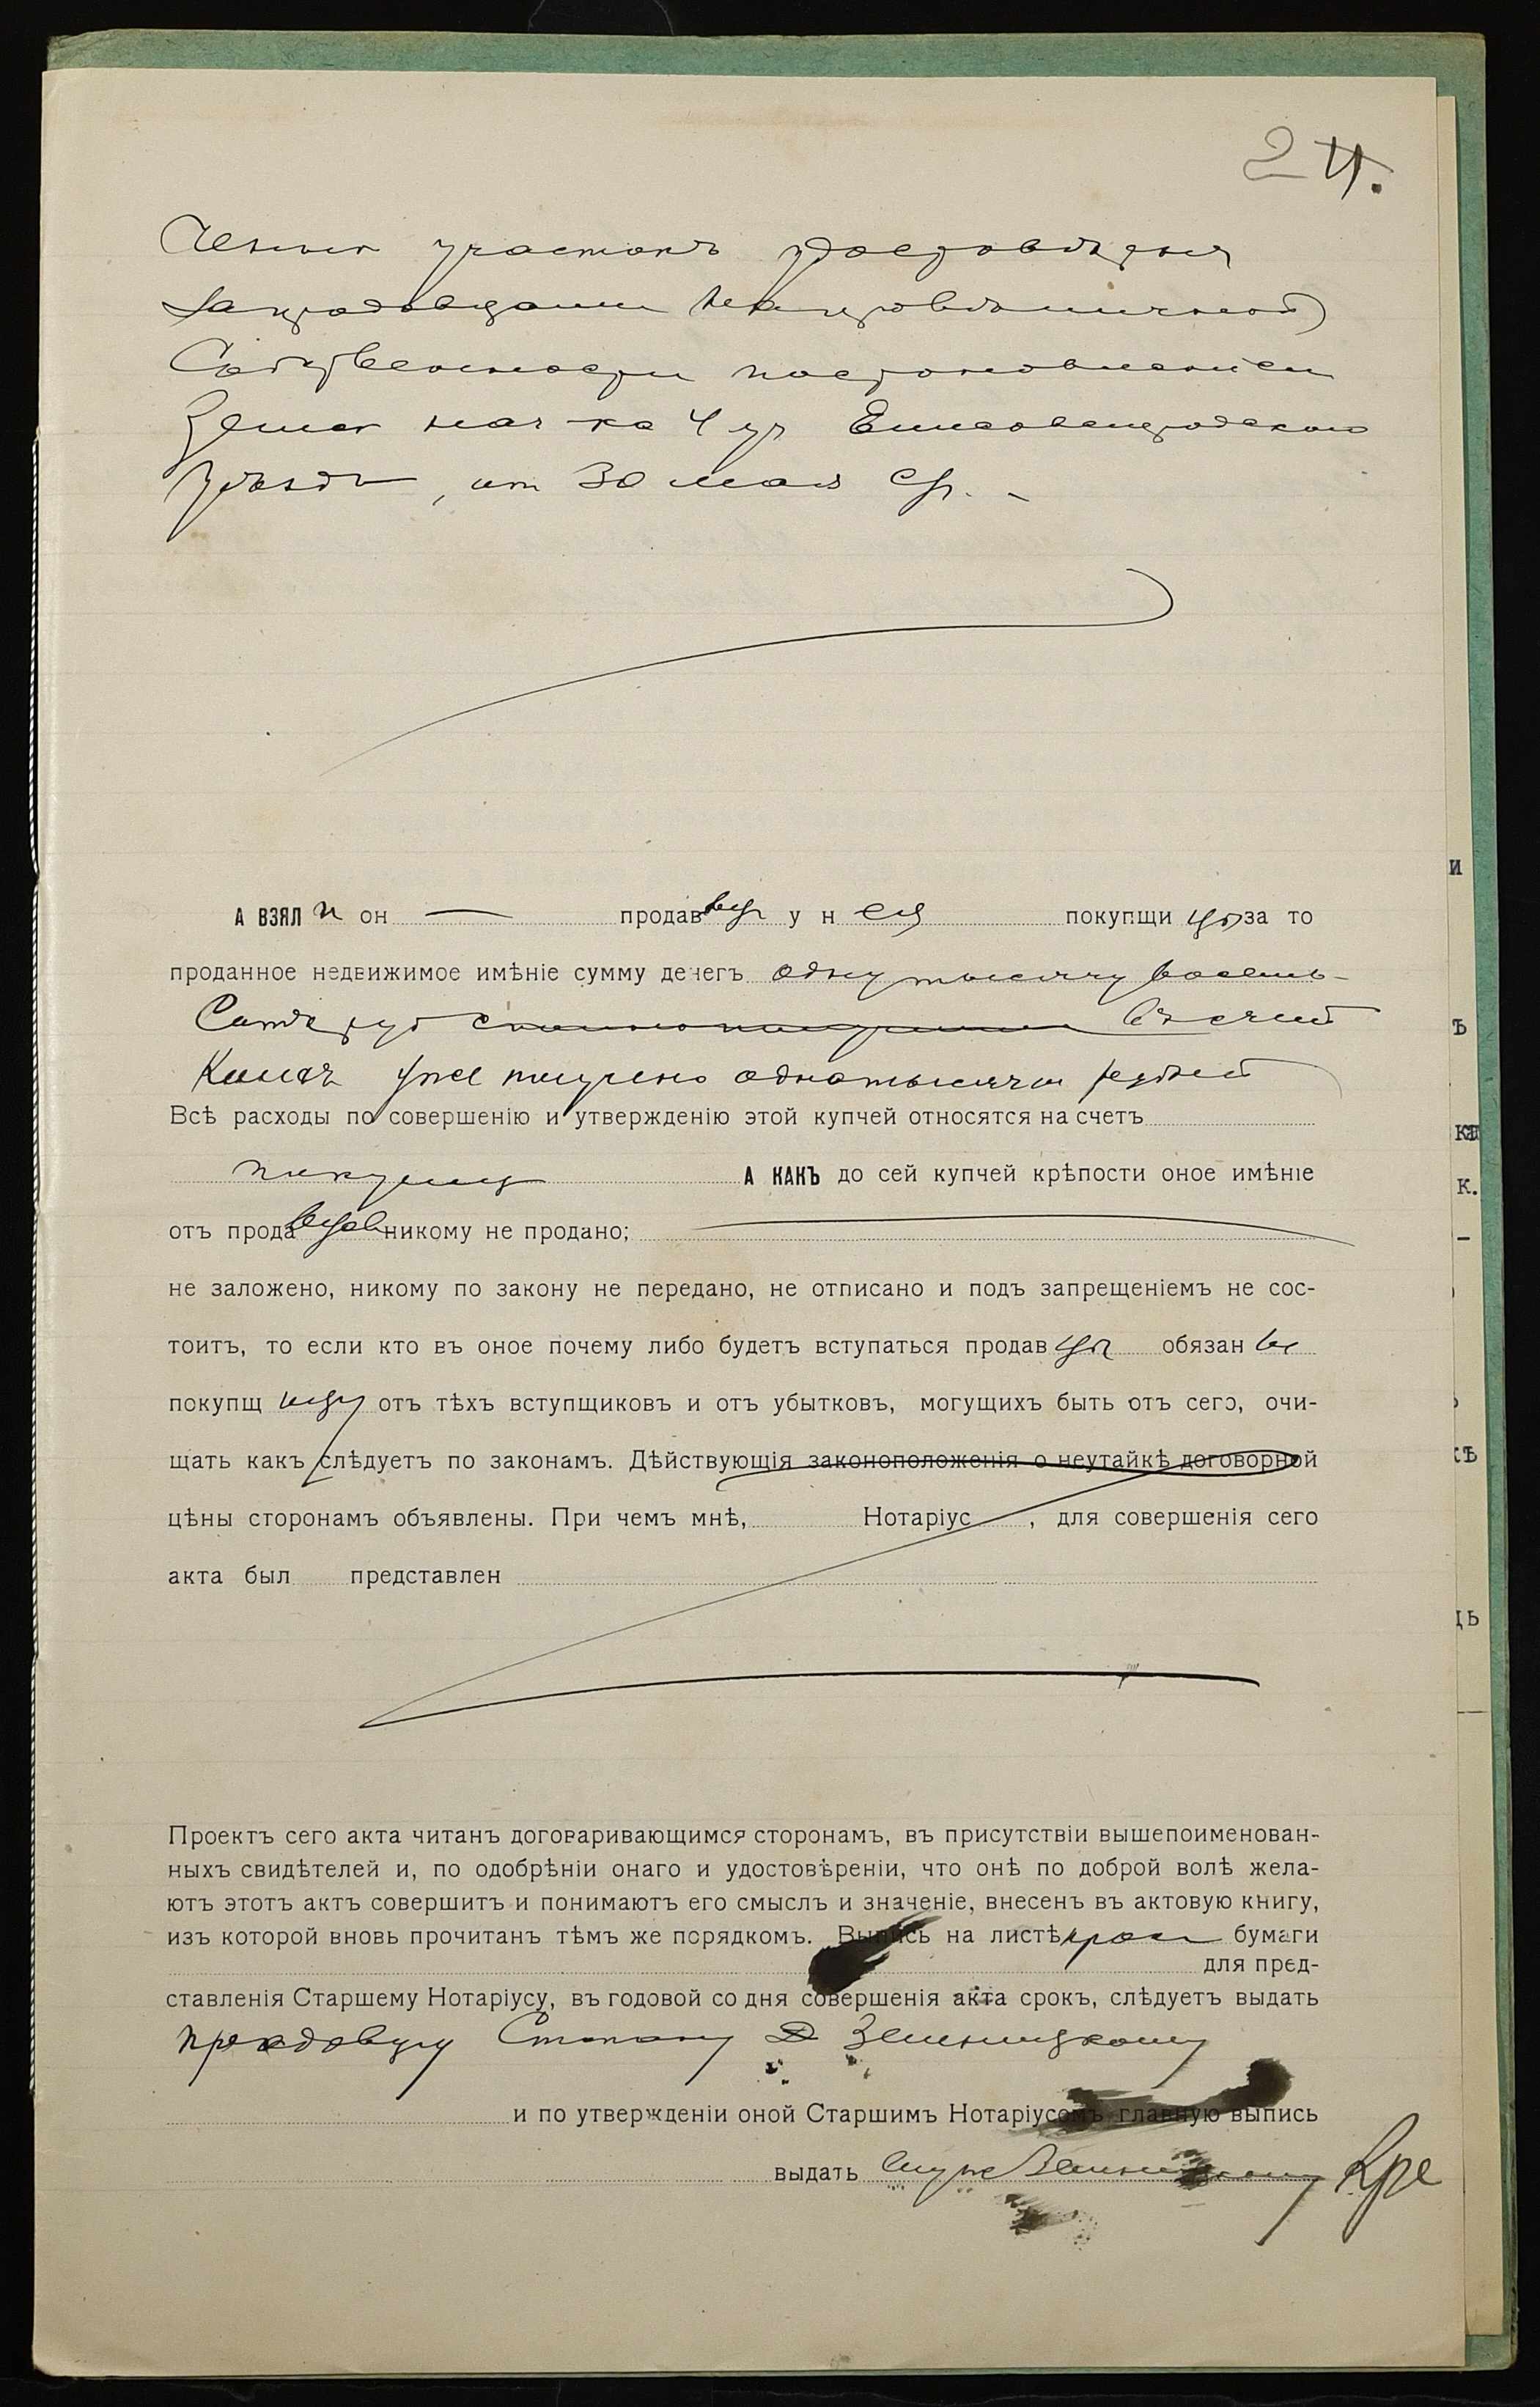 24.
участокъ
за продавцами
собственности постановленіем
Земск нач-ка 4 уч Елисаветградского
уѣзда, от 30 мая с/г. -
А ВЗЯЛ и он продавцы у н ея покупщицы за то
проданное недвижимое имѣніе сумму денегъ одну тысячу восемь-
сотъ руб въ счет
коихъ уже получено одна тысяча рублей
Всѣ расходы по совершенію и утвержденію этой купчей относятся на счетъ
покупщ А КАКЪ до сей купчей крѣпости оное имѣніе
отъ продавцовъ никому не продано;
не заложено, никому по закону не передано, не отписано и подъ запрещеніемъ не сос-
тоитъ, то если кто въ оное почему либо будетъ вступаться продавцы обязаны
покупщицу отъ тѣхъ вступщиковъ и отъ убытковъ, могущихъ быть отъ сего, очи-
щать какъ слѣдуетъ по законамъ. Дѣйствующія законоположенія о неутайкѣ договорной
цѣны сторонамъ объявлены. При чемъ мнѣ, Нотаріус , для совершенія сего
акта был представлен
Проектъ сего акта читанъ договаривающимся сторонамъ, въ присутствіи вышепоименован-
ныхъ свидѣтелей и, по одобрѣніи онаго и удостовѣреніи, что онѣ по доброй волѣ жела-
ютъ этотъ актъ совершитъ и понимаютъ его смыслъ и значеніе, внесенъ въ актовую книгу,
изъ которой вновь прочитанъ тѣмъ же порядкомъ. Выпись на листѣ бумаги
для пред-
ставленія Старшему Нотаріусу, въ годовой со дня совершенія акта срокъ, слѣдуетъ выдать
продавцу Степану Д Зеленицкому
и по утвержденіи оной Старшимъ Нотаріусомъ главную выпись
выдать ему же Зеленицкому Кре